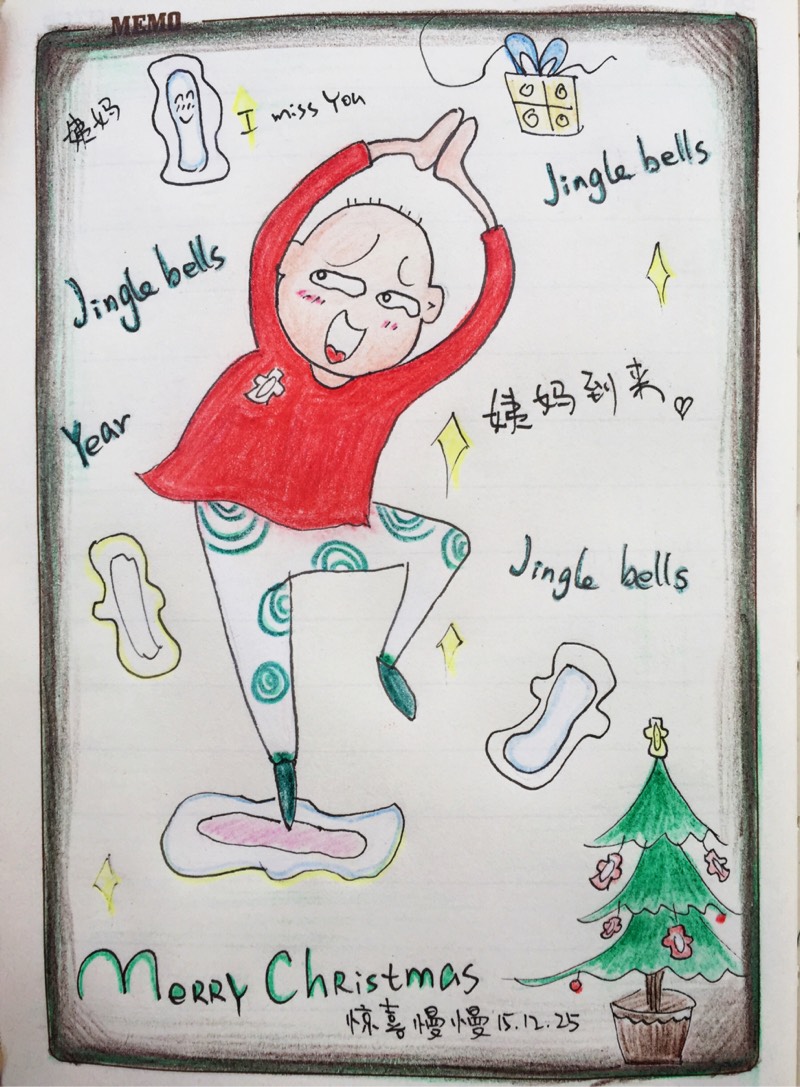 MEMO
姨妈
I miss You
Jingle bells
Jingle bells
姨妈到来
Year
Jingle bells
MERRY CHRistmas
惊喜慢慢 15.12.25